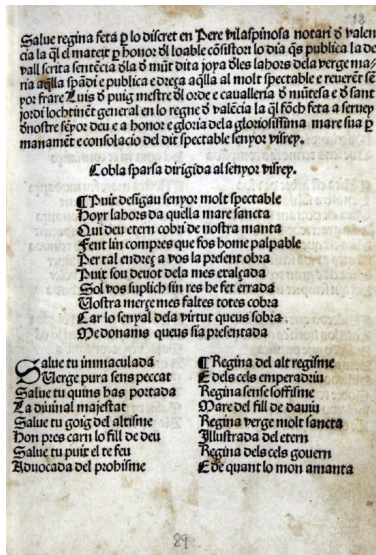 18
Salue regina feta ꝑ lo discret en Pere vilaspinosa notari đ valen
cia la q̃l el mateix ꝑ honor đl loable cõsistori lo dia q̃s publica la de
vall scrita sentẽcia đla đ mũt dita joya đles lahors dela verge ma
ria aq̃lla spãdi e publica e dreça aq̃lla al molt spectable e reuerẽt sẽ
yor frare Luis đ puig mestre đl orde e caualleria đ mũtesa e đ sant
jordi lochtinẽt general en lo regne đ valẽcia la q̃l fõch feta a seruey
đ nostre seyor deu e a honor e gloria dela gloriosissima mare sua ꝑ
manamẽt e consolacio del dit spectable senyor visrey.
Cobla sparsa dirigida al senyor visrey.
¶ Puix desigau senyor molt spectable
Hoyr lahors da quella mare sancta
Qui deu etern cobri de nostra manta
Fent lin compres que fos home palpable
Per tal endreç a vos la present obra
Puix sou deuot dela mes exalçada
Sol vos suplich sin res he fet errada
Vostra merçe mes faltes totes cobra
Car lo senyal dela virtut queus sobra
Me donanis queus sia presentada
Salue tu inmaculada
Uerge pura sens peccat
Salue tu quins has portada
La diuinal majestat
Salue tu goig del altisme
Hon pres carn lo fill de deu
Salue tu puix el te feu
Aduocada del prohisme
¶ Regina del alt regisme
E dels cels emperadriu
Regina sense soffisme
Mare del fill de dauiu
Regina verge molt sancta
Illustrada del etern
Regina dels cels gouern
E de quant lo mon amanta
89